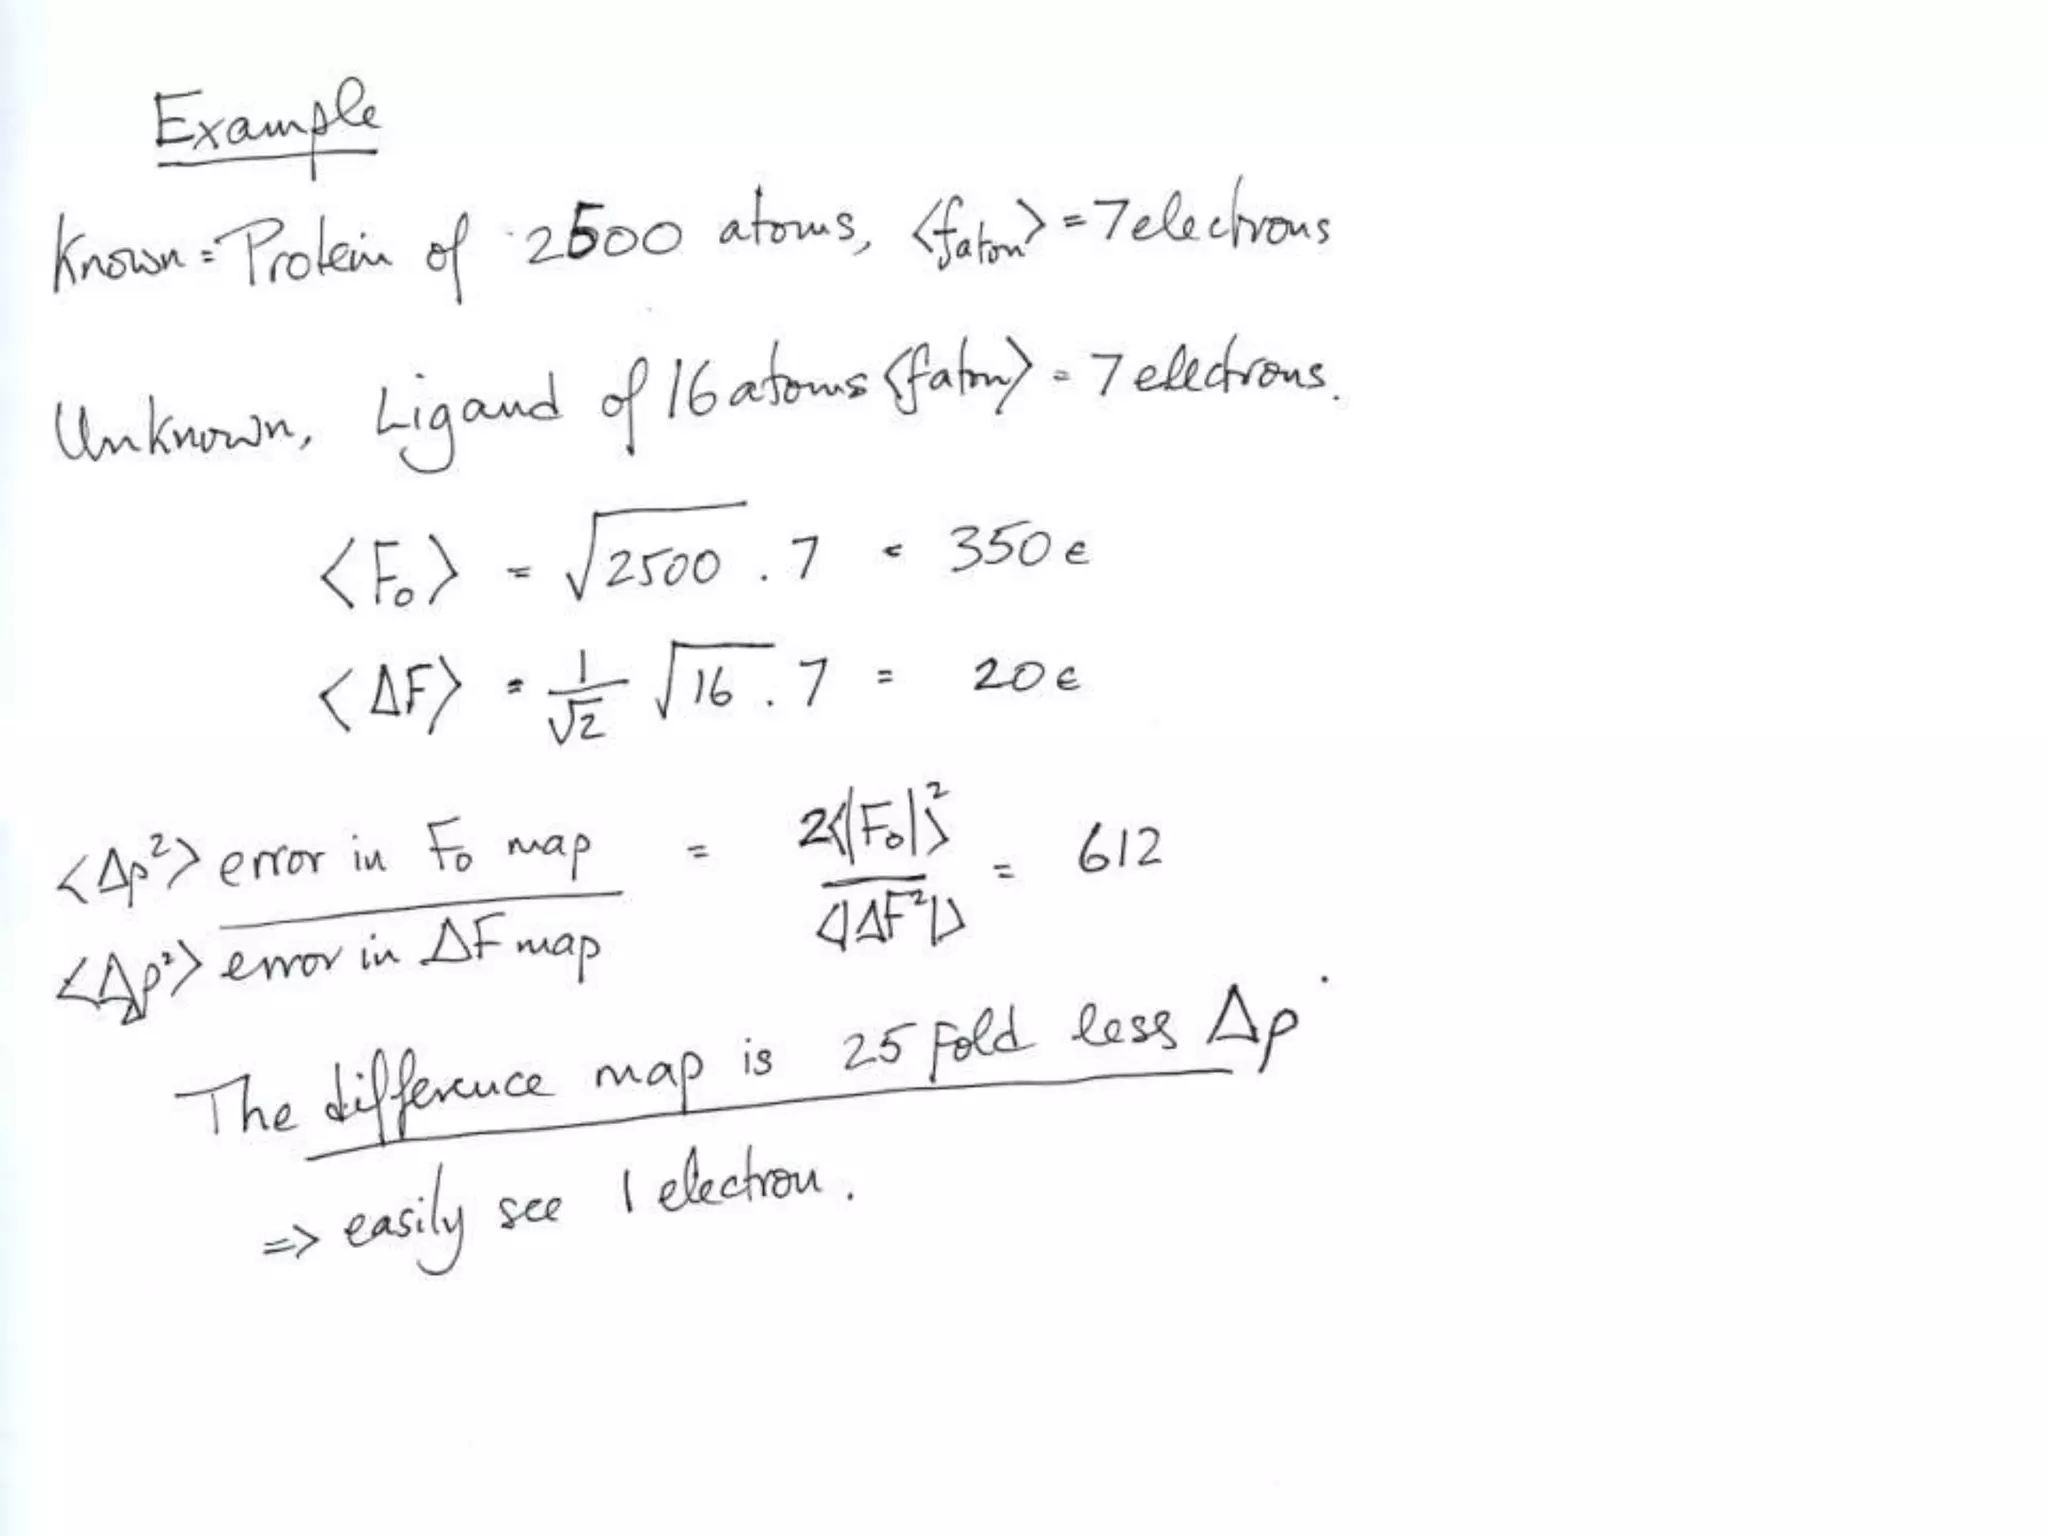 Example
Known = Protein of 2500 atoms, <fatom> = 7 electrons
Unknown, Ligand of 16 atoms <fatom> = 7 electrons.
<Fo> = √2500 . 7 = 350 e
<ΔF> = 1/√2 √16 . 7 = 20 e
<Δρ²> error in Fo map / <Δρ²> error in ΔF map = 2<|Fo|>² / <|ΔF²|> = 612
The difference map is 25 Fold less Δρ.
=> easily see 1 electron.